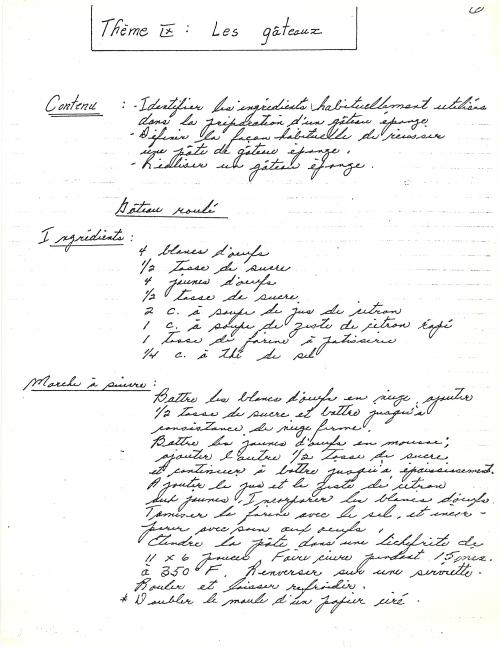 Thème IX : Les gâteaux
Contenu : - Identifier les ingrédients habituellement utilisés
dans la préparation d'un gâteau éponge.
- Définir la façon habituelle de réussir
une pâte de gâteau éponge.
- Réaliser un gâteau éponge.
Gâteau roulé
Ingrédients :
4 blancs d'oeufs
1/2 tasse de sucre
4 jaunes d'oeufs
1/2 tasse de sucre
2 c. à soupe de jus de citron
1 c. à soupe de zeste de citron rapé
1 tasse de farine à patisserie
1/4 c. à thé de sel
Marche à suivre :
Battre les blancs d'oeufs en neige, ajouter
1/2 tasse de sucre et battre jusqu'à
consistance de neige ferme.
Battre les jaunes d'oeufs en mousse;
ajouter l'autre 1/2 tasse de sucre
et continuer à battre jusqu'à épaississement.
Ajouter le jus et le zeste de citron
aux jaunes. Incorporer les blancs d'oeufs.
Tamiser la farine avec le sel, et incor-
porer avec soin aux oeufs.
Etendre la pâte dans une lèchefrite de
11 x 6 pouces. Faire cuire pendant 15 min.
à 350° F. Renverser sur une serviette.
Rouler et laisser refroidir.
* Doubler le moule d'un papier ciré.